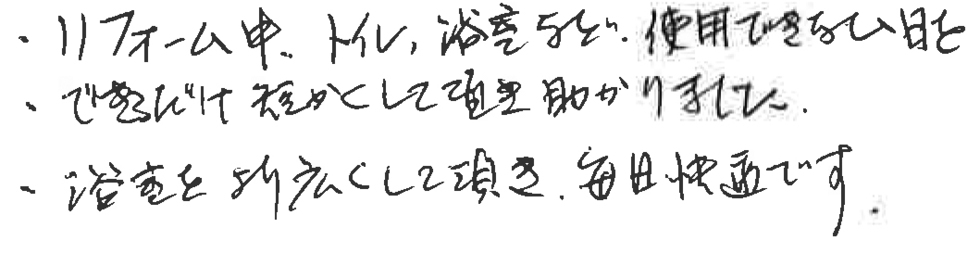 ・リフォーム中、トイレ、浴室など、使用できない日を
・できるだけ短かくして頂き助かりました。
・浴室を 広くして頂き、毎日快適です。